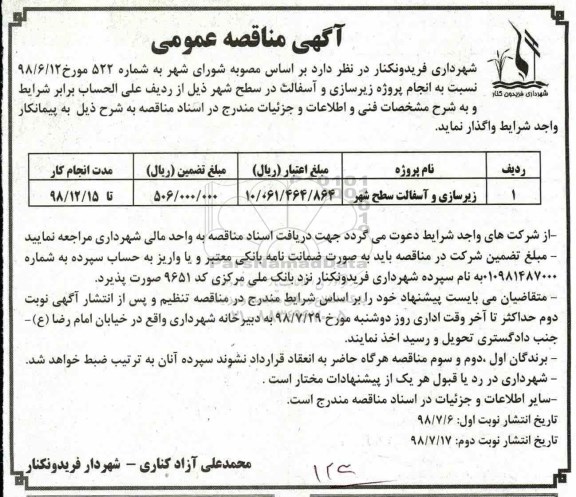 آگهی مناقصه عمومی
شهرداری فریدون کنار
شهرداری فریدونکنار در نظر دارد بر اساس مصوبه شورای شهر به شماره ۵۲۲ مورخ ۹۸/۶/۱۲
نسبت به انجام پروژه زیرسازی و آسفالت در سطح شهر ذیل از ردیف علی الحساب برابر شرایط
و به شرح مشخصات فنی و اطلاعات و جزئیات مندرج در اسناد مناقصه به شرح ذیل به پیمانکار
واجد شرایط واگذار نماید.
ردیف نام پروژه مبلغ اعتبار (ریال) مبلغ تضمین (ریال) مدت انجام کار
۱ زیرسازی و آسفالت سطح شهر ۱۰/۰۶۱/۴۶۴/۸۶۴ ۵۰۶/۰۰۰/۰۰۰ تا ۹۸/۱۲/۱۵
-از شرکت های واجد شرایط دعوت می گردد جهت دریافت اسناد مناقصه به واحد مالی شهرداری مراجعه نمایید
- مبلغ تضمین شرکت در مناقصه باید به صورت ضمانت نامه بانکی معتبر و یا واریز به حساب سپرده به شماره
۰۱۰۹۸۱۴۸۷۰۰۰به نام سپرده شهرداری فریدونکنار نزد بانک ملی مرکزی کد ۹۶۵۱ صورت پذیرد.
- متقاضیان می بایست پیشنهاد خود را بر اساس شرایط مندرج در مناقصه تنظیم و پس از انتشار آگهی نوبت
دوم حداکثر تا آخر وقت اداری روز دوشنبه مورخ ۹۸/۷/۲۹ به دبیرخانه شهرداری واقع در خیابان امام رضا (ع)-
جنب دادگستری تحویل و رسید اخذ نمایند.
- برندگان اول ،دوم و سوم مناقصه هرگاه حاضر به انعقاد قرارداد نشوند سپرده آنان به ترتیب ضبط خواهد شد.
- شهرداری در رد یا قبول هر یک از پیشنهادات مختار است .
-سایر اطلاعات و جزئیات در اسناد مناقصه مندرج است.
تاریخ انتشار نوبت اول: ۹۸/۷/۶
تاریخ انتشار نوبت دوم: ۹۸/۷/۱۷
محمدعلی آزاد کناری - شهردار فریدونکنار